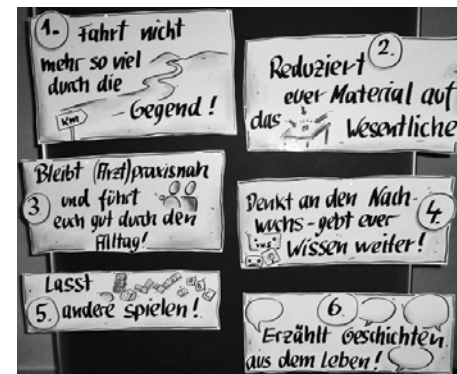 1. Fahrt nicht
mehr so viel
durch die
Km
Gegend!
2.
Reduziert
euer Material auf
das Wesentliche
Bleibt (Arzt)praxisnah
3. und führt
euch gut durch den
Alltag!
Denkt an den Nach-
wuchs - gebt euer 4.
Wissen weiter!
Lasst
5. andere spielen!
6.
Erzählt Geschichten
aus dem Leben!